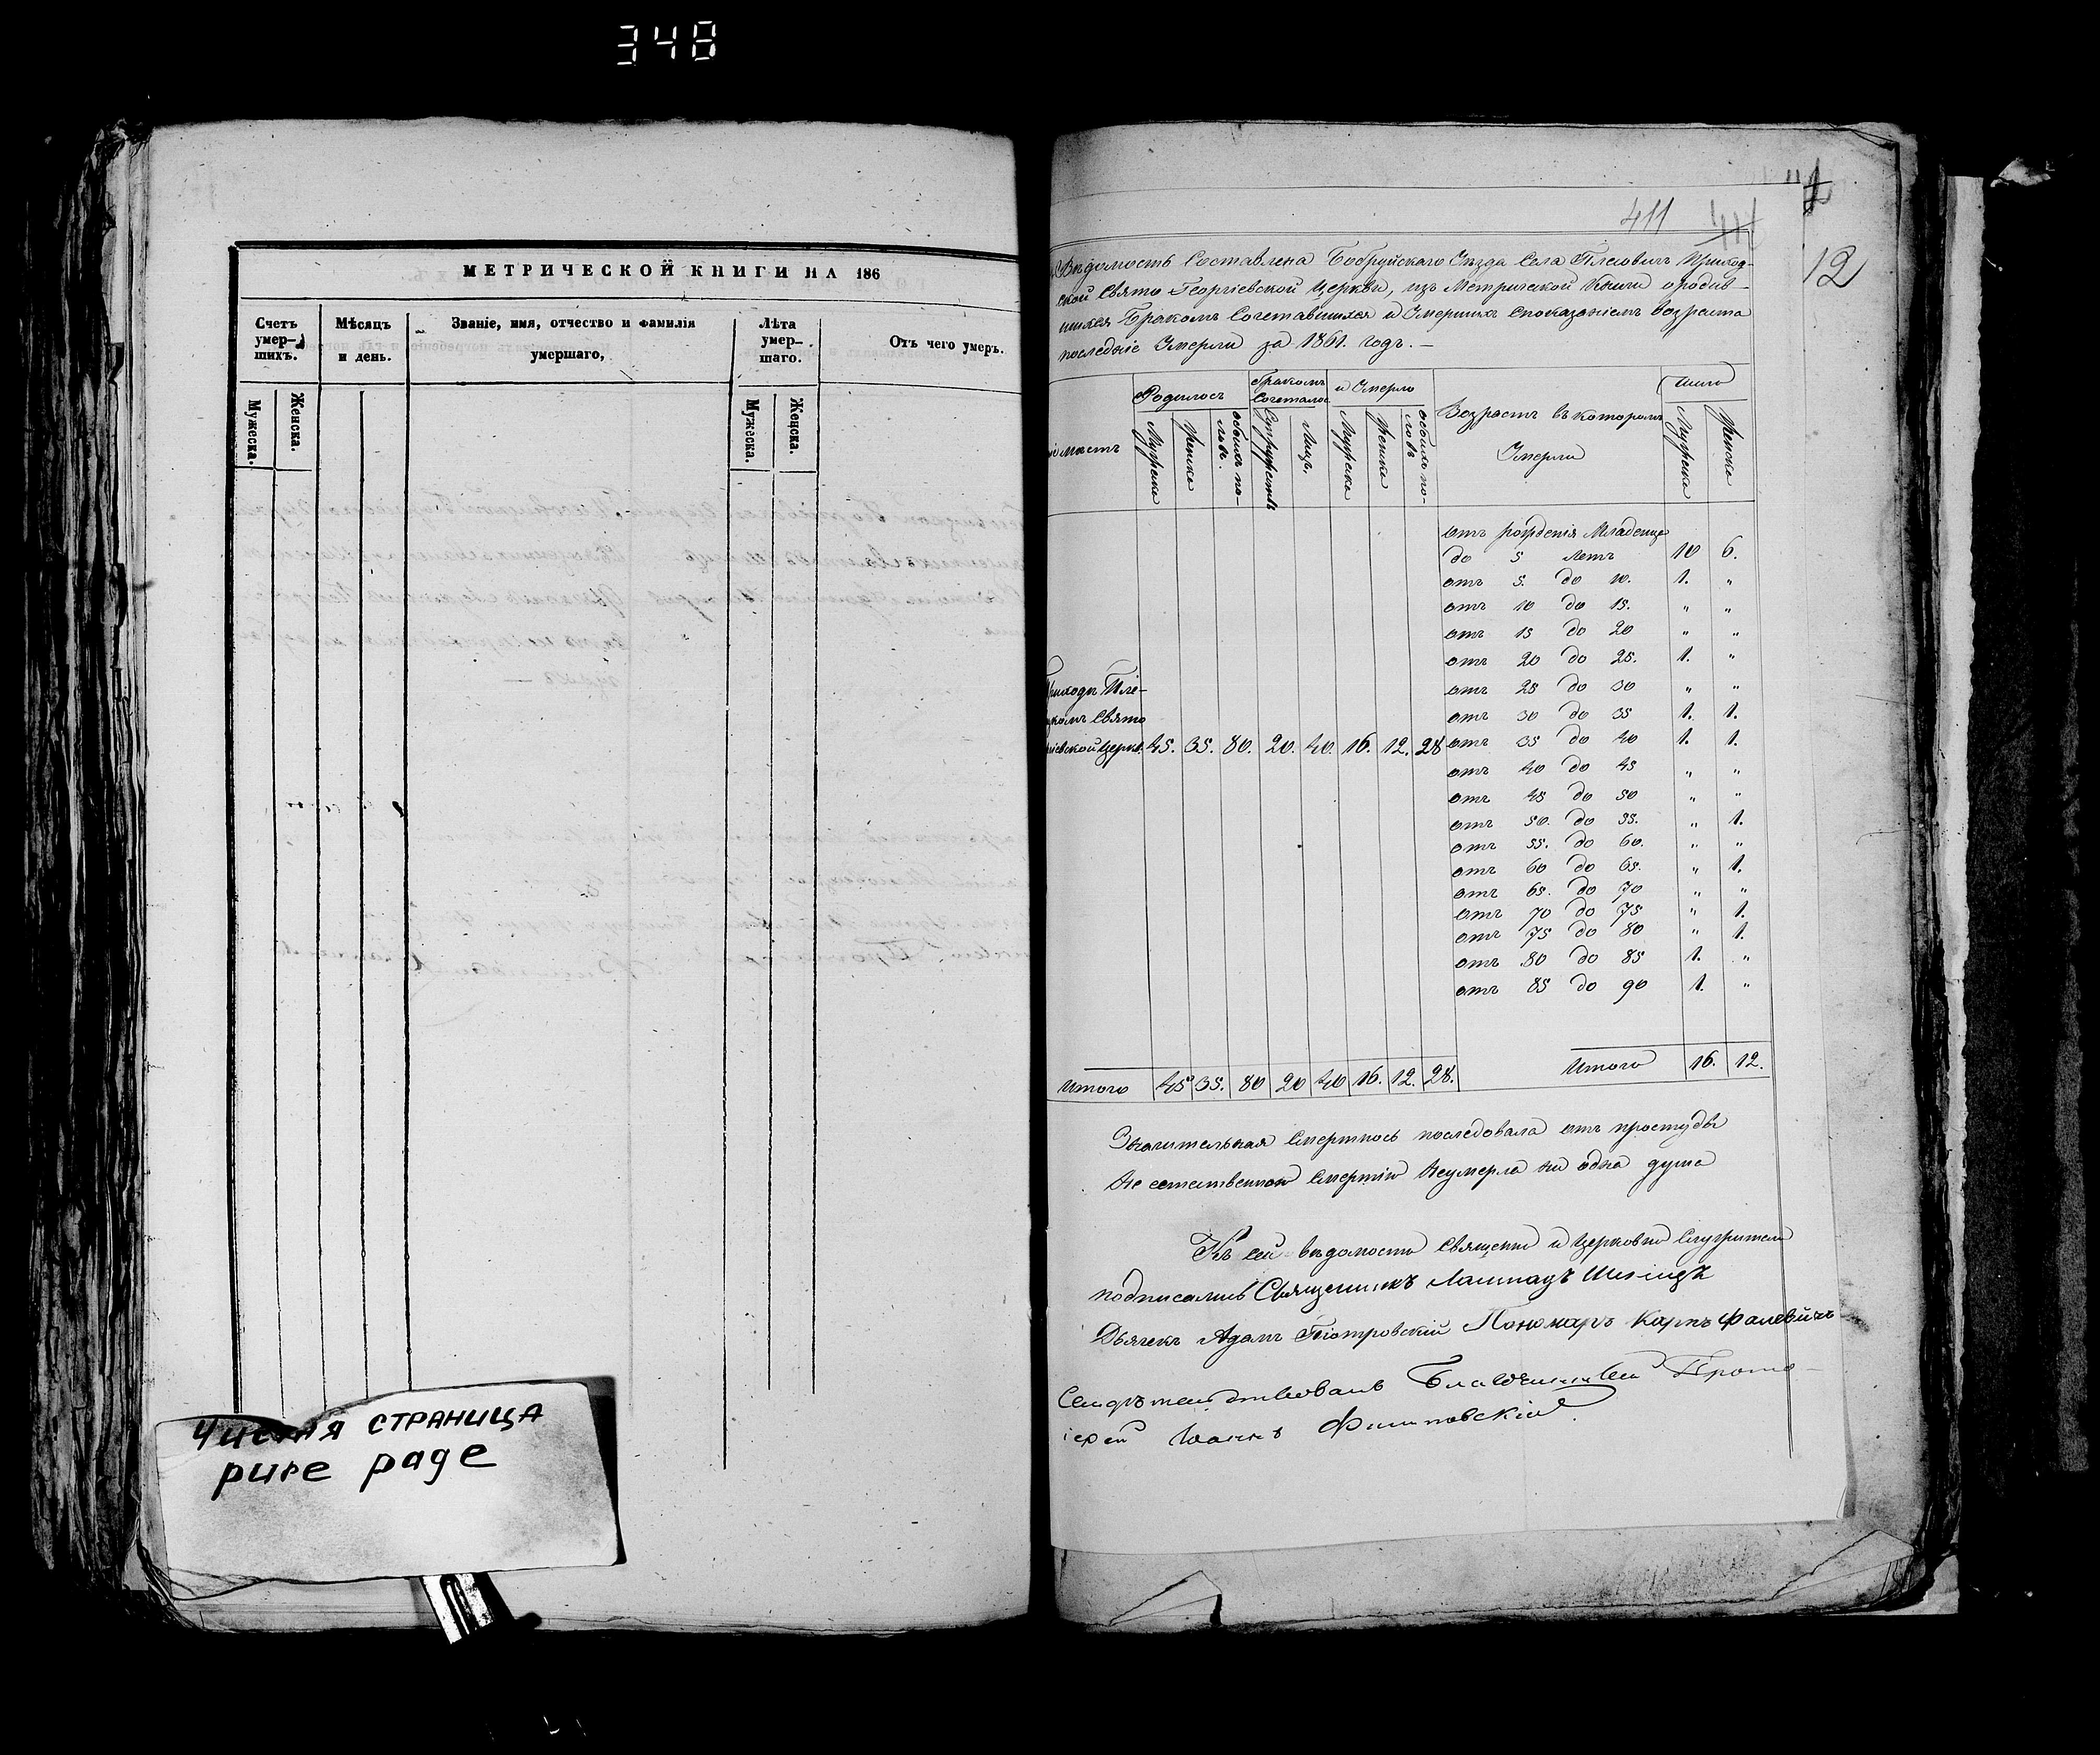 348
МЕТРИЧЕСКОЙ КНИГИ НА 186
Счетъ умер-шихъ.
Мѣсяцъ и день.
Званіе, имя, отчество и фамилія умершаго,
Лѣта умер-шаго.
Отъ чего умеръ.
Мужеска.
Женска.
Мужеска.
Женска.
Чистая страница
pure page
411
12
Вѣдомость Составлена Бобруйскаго Уѣзда Села Плесовичъ Приход-
ской Свято Георгіевской Церкви, изъ Метрической Книги о родив-
шихся Бракомъ Сочетавшихся и Умершихъ споказаніемъ возраста
последніе Умерли за 1861. годъ. —
Родилось
Бракомъ Сочеталос
и Умерло
Возрастъ въ которомъ Умерли
Число
мѣстъ
Мужеска
Женска
обоихъ по-ловъ.
Супружествъ
Лицъ.
Мужеска
Женска
обоихъ по-ловъ
Мужеска
Женска
отъ рожденія Младенца
до 5 летъ 10 6.
отъ 5. до 10. 1. „
отъ 10 до 15. „ „
отъ 15 до 20 „ „
отъ 20 до 25. 1. „
отъ 25 до 30 „ „
отъ 30 до 35 1. 1.
отъ 35 до 40 1. 1.
отъ 40 до 45 „ „
отъ 45 до 50 „ „
отъ 50. до 55. „ 1.
отъ 55. до 60. „ „
отъ 60 до 65. „ 1.
отъ 65. до 70 „ „
отъ 70 до 75 „ 1.
отъ 75 до 80 „ 1.
отъ 80 до 85 1. „
отъ 85 до 90 1. „
Свято
Церкв. 45. 35. 80. 20. 40. 16. 12. 28
Итого 16. 12.
Итого 45 35. 80 20 40 16. 12. 28.
Значительная Смертнось последовала отъ простуды
Не естественной Смертію Неумерла ни одна душа
Къ сей вѣдомости Священно и Церковно Служители
подписались Священникъ
Дьячекъ Адамъ Піотровскій Пономарь Карпъ Фалевичъ
Свидѣтельствовалъ Благочинный Прото-
іерей Іоаннъ